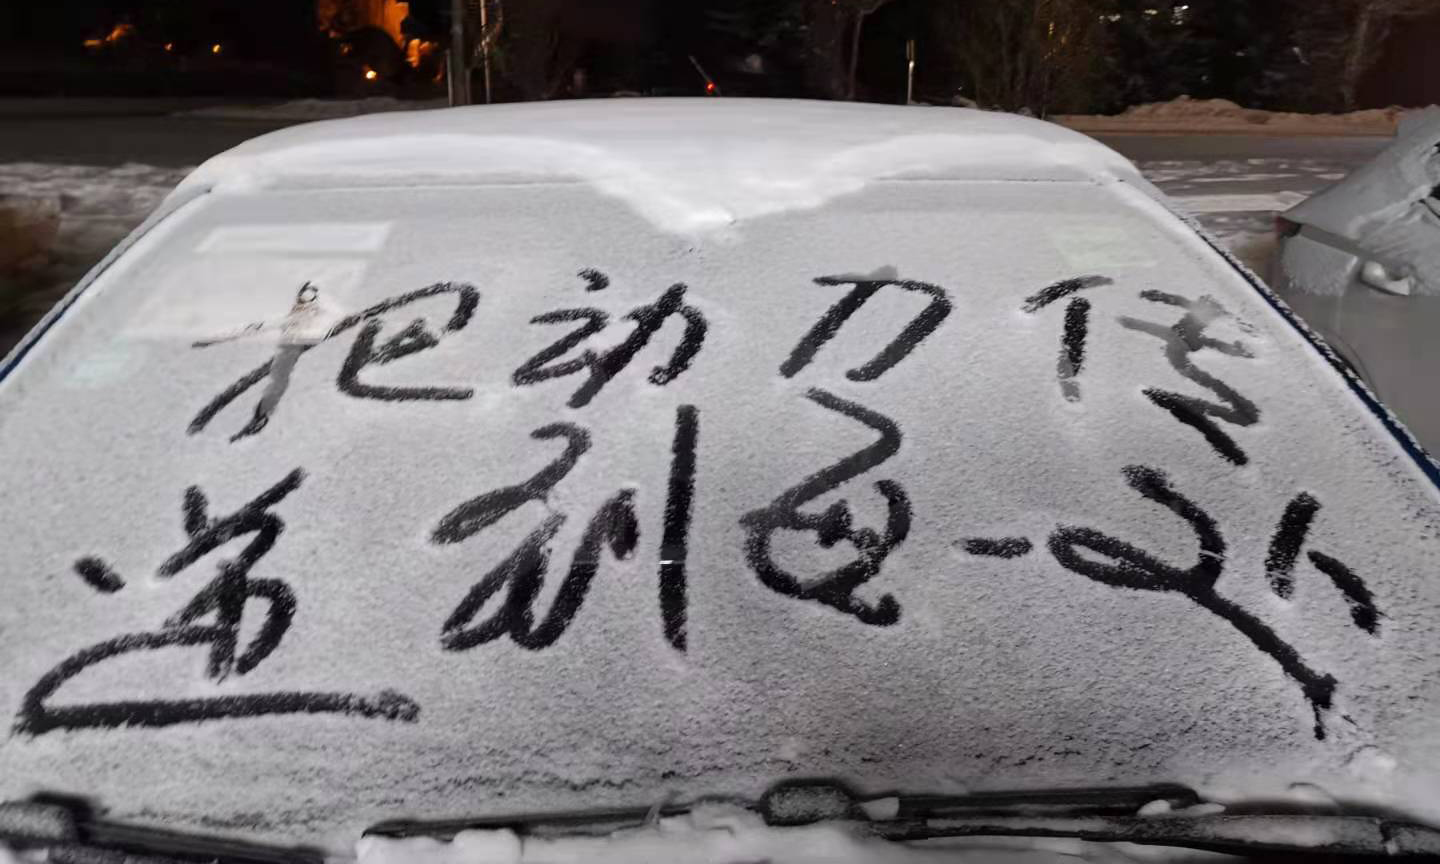 把动力传
递到每一处